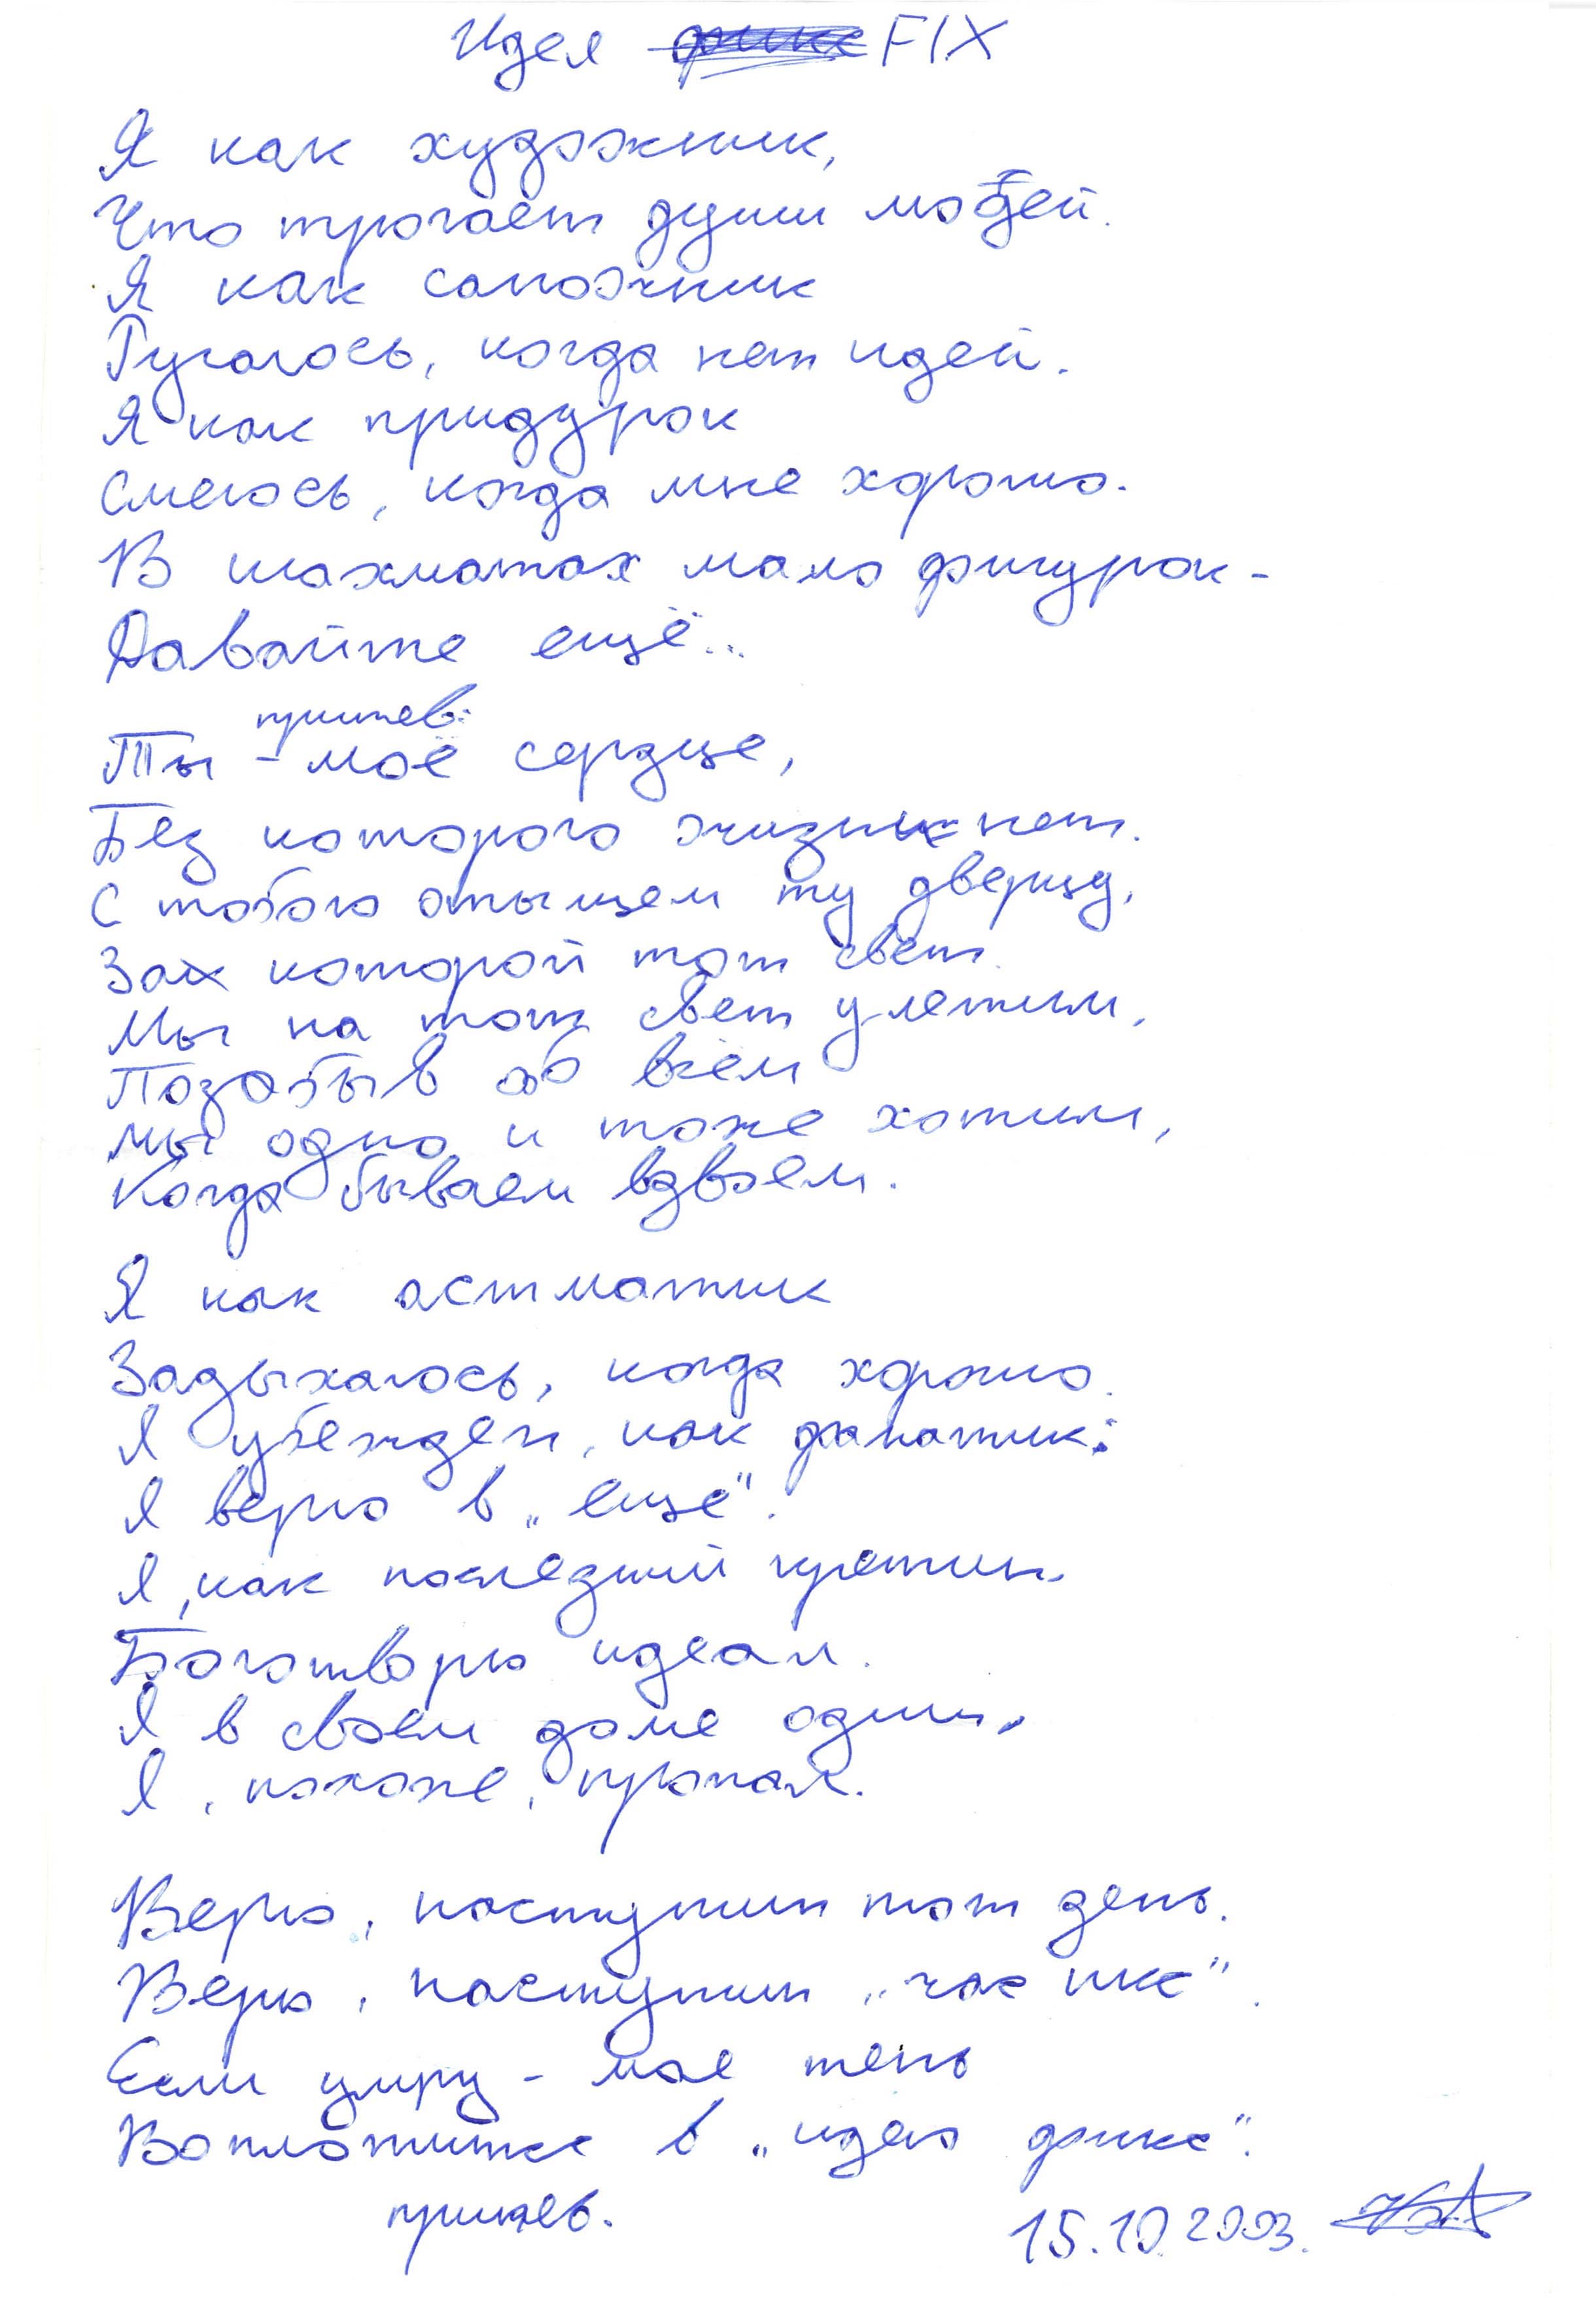 Идея FIX
Я как художник,
Что трогает души людей.
Я как сапожник
Ругаюсь, когда нет идей.
Я как придурок
Смеюсь, когда мне хорошо.
В шахматах мало фигурок -
Давайте ещё...
припев:
Ты - моё сердце,
Без которого жизни нет.
С тобою отыщем ту дверцу,
За которой тот свет.
Мы на тот свет улетим,
Позабыв об всём
Мы одно и тоже хотим,
Когда бываем вдвоём.
Я как астматик
Задыхаюсь, когда хорошо.
Я убежден, как фанатик:
Я верю в „ещё".
Я, как последний кретин
Боготворю идеал.
Я в своем доме один,
Я, похоже, пропал.
Верю, наступит тот день.
Верю, наступит „час икс".
Если умру - моя тень
Воплотится в „идею фикс".
припев.
15.10.2003.